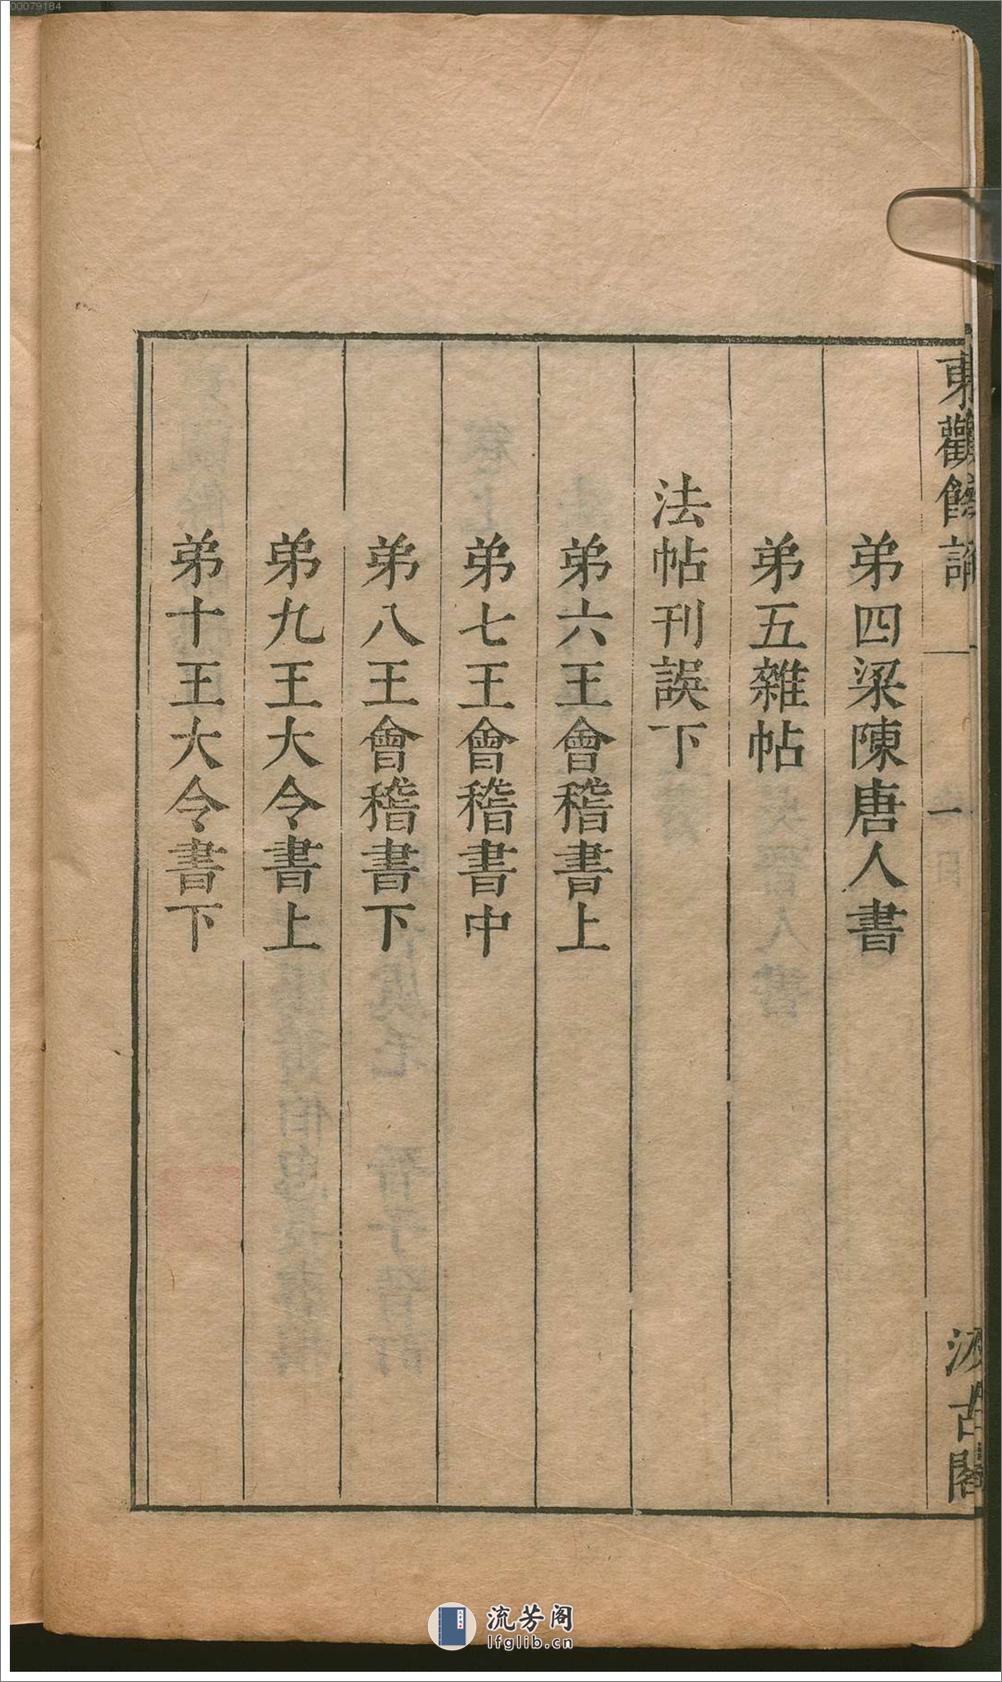 東觀餘論
一
汲古閣
弟四梁陳唐人書
弟五雜帖
法帖刊誤下
弟六王會稽書上
弟七王會稽書中
弟八王會稽書下
弟九王大令書上
弟十王大令書下
00079184
流芳阁
lfglib.cn